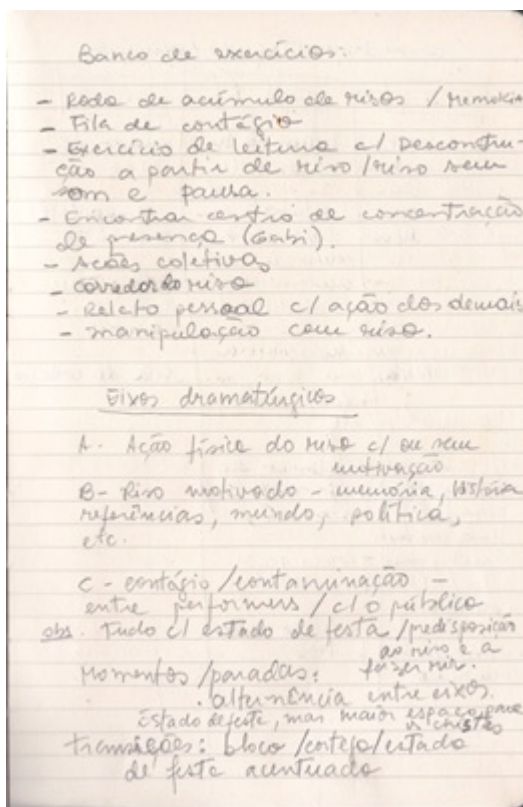 Banco de exercícios:
- Roda de acúmulo de risos / Memória
- Fila de contágio
- Exercício de leitura c/ Desconstru-
ção a partir de riso/riso sem
som e pausa.
- Encontrar centro de concentração
de presença (Gabi).
- Ações coletivas
- corredor do riso
- Relato pessoal c/ ação dos demais
- manipulação com riso.
Eixos dramatúrgicos
A - Ação física do riso c/ ou sem
motivação
B - Riso motivado - memória, história
referências, mundo, política,
etc.
C - contágio/contaminação -
entre performers / c/ o público
obs. Tudo c/ estado de festa / predisposição
ao riso e a
fazer rir.
Momentos/paradas:
. alternância entre eixos.
Estado de festa, mas maior espaço para
transições: bloco/cortejo/estado
de festa acentuado